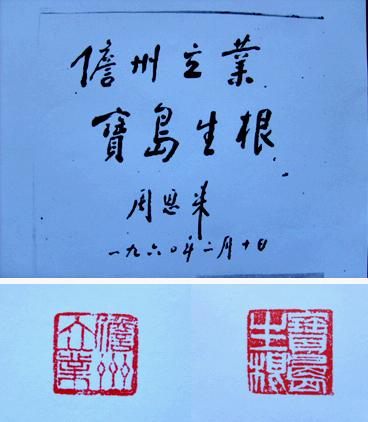 儋州立業
寶島生根
周恩来
一九六〇年二月十日
儋州
立業
寶島
生根